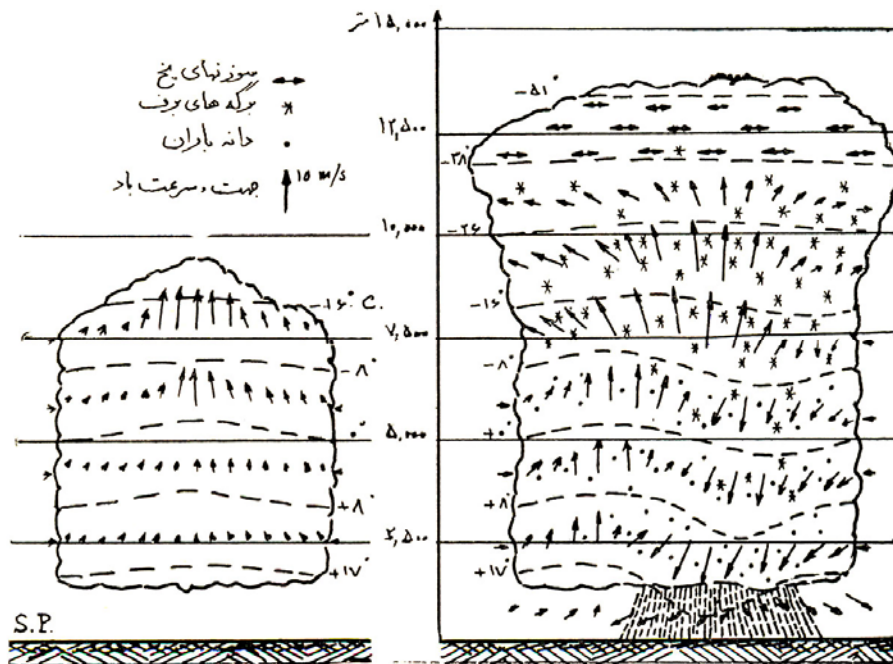 ۱۵,۰۰۰ متر
سوزنهای یخ
برگه های برف
دانه باران
جهت و سرعت باد
10 m/s
۱۲,۵۰۰
۱۰,۰۰۰
۷,۵۰۰
۵,۰۰۰
۲,۵۰۰
-۱۶° C.
-۸°
۰°
+۸°
+۱۷°
-۵۱°
-۳۸°
-۲۶
-۱۶°
-۸°
+۰°
+۸°
+۱۷°
S.P.